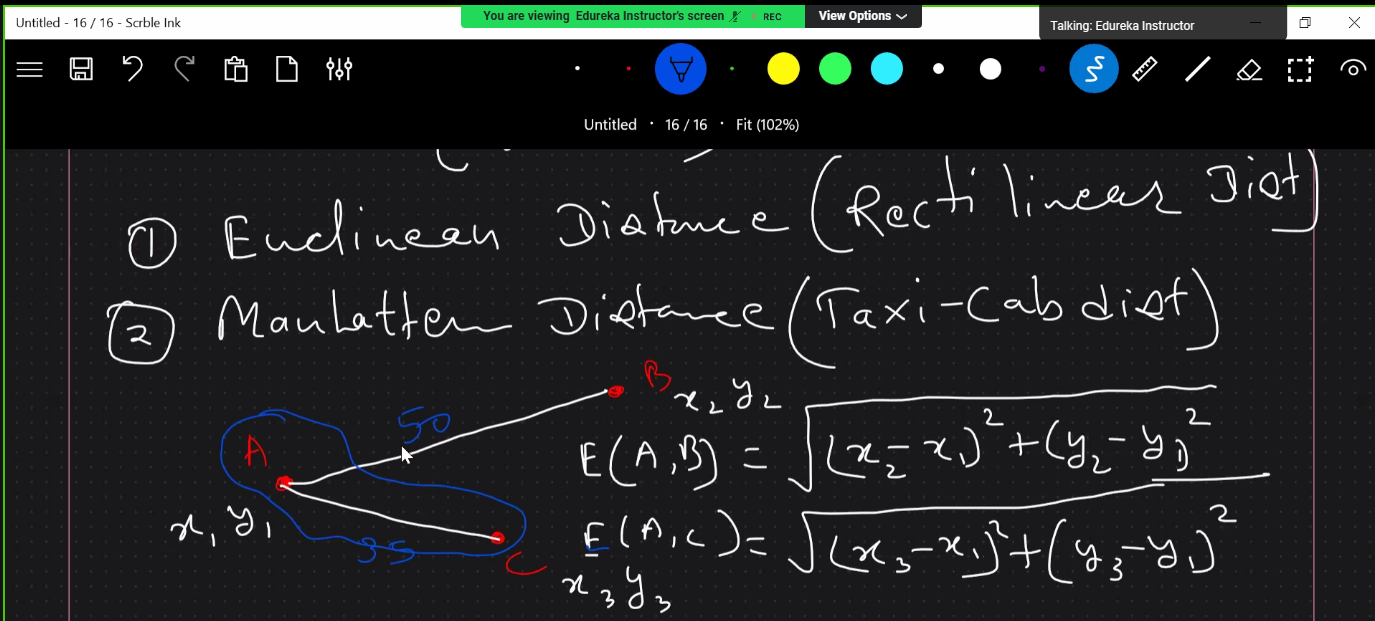 Untitled - 16 / 16 - Scrble Ink
You are viewing Edureka Instructor's screen
REC
View Options
Talking: Edureka Instructor
Untitled · 16 / 16 · Fit (102%)
① Euclinean Distance (Rectilinear Dist)
② Manhatten Distance (Taxi-Cab dist)
B
x₂ y₂
50
A
E(A,B) = √(x₂-x₁)²+(y₂-y₁)²
x₁ y₁
E(A,C) = √(x₃-x₁)²+(y₃-y₁)²
35
C
x₃ y₃